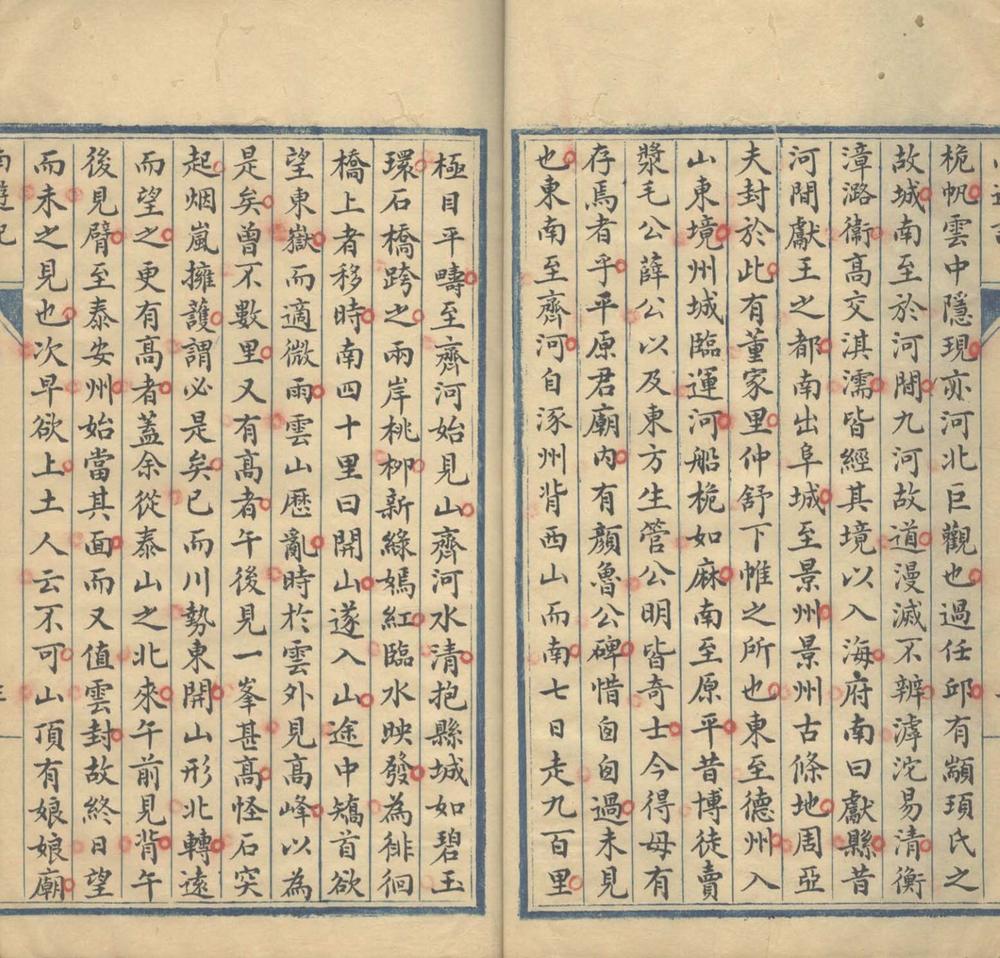 桅帆雲中隱現亦河北巨觀也過任邱有顓頊氏之
故城南至於河間九河故道漫滅不辨滹沱易清衡
漳潞衛高交淇濡皆經其境以入海府南曰獻縣昔
河間獻王之都南出阜城至景州景州古條地周亞
夫封於此有董家里仲舒下帷之所也東至德州入
山東境州城臨運河船桅如麻南至原平昔博徒賣
漿毛公薛公以及東方生管公明皆奇士今得毋有
存焉者乎平原君廟內有顏魯公碑惜匆匆過未見
也東南至齊河自涿州背西山而南七日走九百里
極目平疇至齊河始見山齊河水清抱縣城如碧玉
環石橋跨之兩岸桃柳新綠嫣紅臨水映發為徘徊
橋上者移時南四十里曰開山遂入山途中矯首欲
望東嶽而適微雨雲山歷亂時於雲外見高峰以為
是矣曾不數里又有高者午後見一峯甚高怪石突
起烟嵐擁護謂必是矣已而川勢東開山形北轉遠
而望之更有高者蓋余從泰山之北來午前見背午
後見臂至泰安州始當其面而又值雲封故終日望
而未之見也次早欲上土人云不可山頂有娘娘廟
南遊記